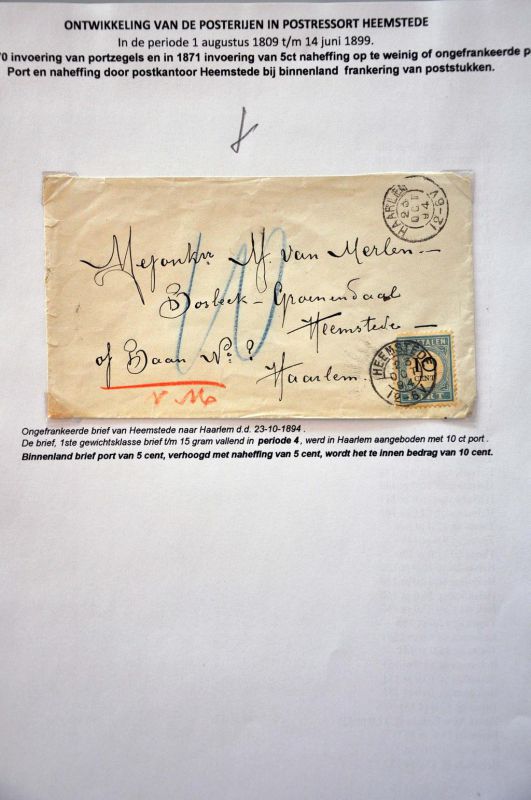 ONTWIKKELING VAN DE POSTERIJEN IN POSTRESSORT HEEMSTEDE
In de periode 1 augustus 1809 t/m 14 juni 1899.
70 invoering van portzegels en in 1871 invoering van 5ct naheffing op te weinig of ongefrankeerde p
Port en naheffing door postkantoor Heemstede bij binnenland frankering van poststukken.
HAARLEM
23
OCT
94
12-6V
10
Mejonkvr M. van Merlen -
Bosbeek - Groenendaal
Heemstede -
of Baan No. ?
Haarlem.
v M
BETALEN
10
CENT
HEEMSTEDE
OCT
94
Ongefrankeerde brief van Heemstede naar Haarlem d.d. 23-10-1894 .
De brief, 1ste gewichtsklasse brief t/m 15 gram vallend in periode 4, werd in Haarlem aangeboden met 10 ct port .
Binnenland brief port van 5 cent, verhoogd met naheffing van 5 cent, wordt het te innen bedrag van 10 cent.